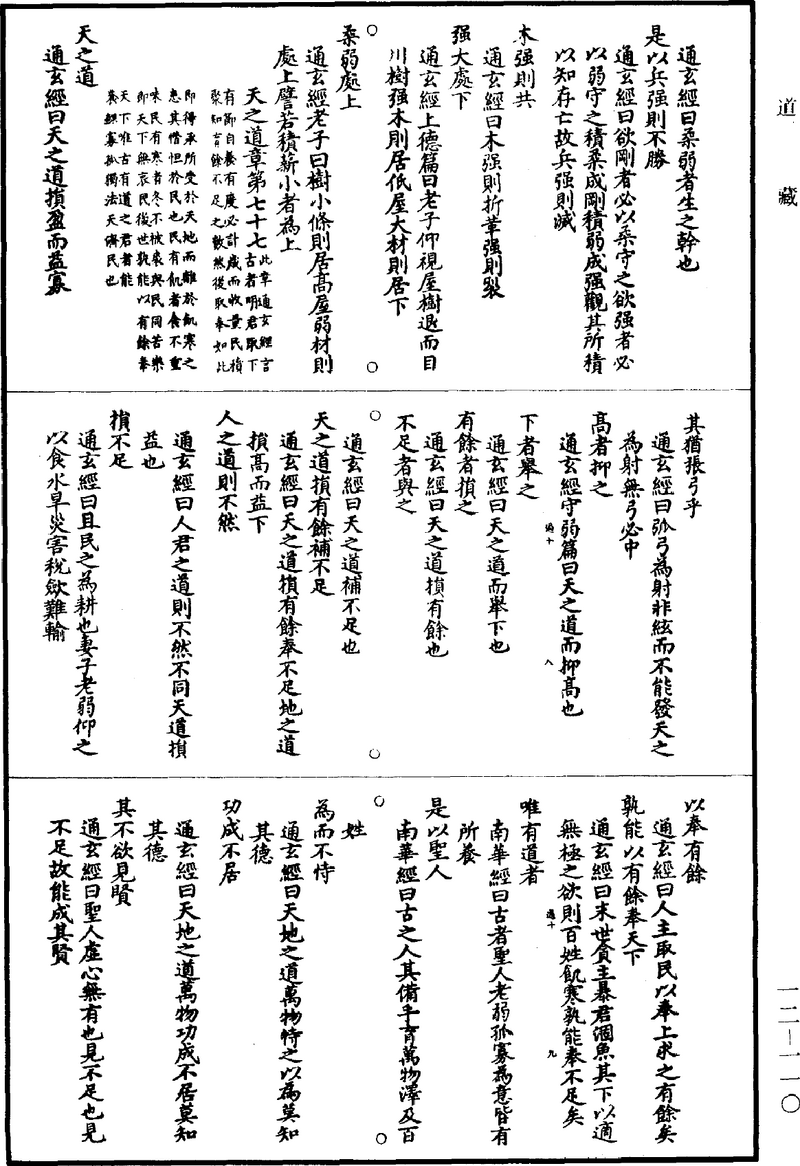 道藏
一二—一一〇
通玄經曰柔弱者生之幹也
是以兵强則不勝
通玄經曰欲剛者必以柔守之欲强者必
以弱守之積柔成剛積弱成强觀其所積
以知存亡故兵强則滅
木强則共
通玄經曰木强則折革强則裂
强大處下
通玄經上德篇曰老子仰視屋樹退而目
川樹强木則居低屋大材則居下
柔弱處上
通玄經老子曰樹小條則居高屋弱材則
處上譬若積薪小者為上
天之道章第七十七
此章通玄經言
古者明君取下
有節自養有度必計歲而收量民積
聚知有餘不足之數然後取奉如此
即得承所受於天地而離於飢寒之
患其憯怛於民也民有飢者食不重
味民有寒者冬不被裘與民同苦樂
即天下無哀民後世孰能以有餘奉
天下唯古有道之君者能
養鰥寡孤獨法天濟民也
天之道
通玄經曰天之道損盈而益寡
其猶張弓乎
通玄經曰弧弓為射非絃而不能發天之
為射無弓必中
高者抑之
通玄經守弱篇曰天之道而抑高也
過十 八
下者舉之
通玄經曰天之道而舉下也
有餘者損之
通玄經曰天之道損有餘也
不足者與之
通玄經曰天之道補不足也
天之道損有餘補不足
通玄經曰天之道損有餘奉不足地之道
損高而益下
人之道則不然
通玄經曰人君之道則不然不同天道損
益也
損不足
通玄經曰且民之為耕也妻子老弱仰之
以食水旱災害稅斂難輸
以奉有餘
通玄經曰人主取民以奉上求之有餘矣
孰能以有餘奉天下
通玄經曰末世貪主暴君涸魚其下以適
無極之欲則百姓飢寒孰能奉不足矣
過十 九
唯有道者
南華經曰古者聖人老弱孤寡為意皆有
所養
是以聖人
南華經曰古之人其備乎育萬物澤及百
姓
為而不恃
通玄經曰天地之道萬物恃之以為莫知
其德
功成不居
通玄經曰天地之道萬物功成不居莫知
其德
其不欲見賢
通玄經曰聖人虛心無有也見不足也見
不足故能成其賢